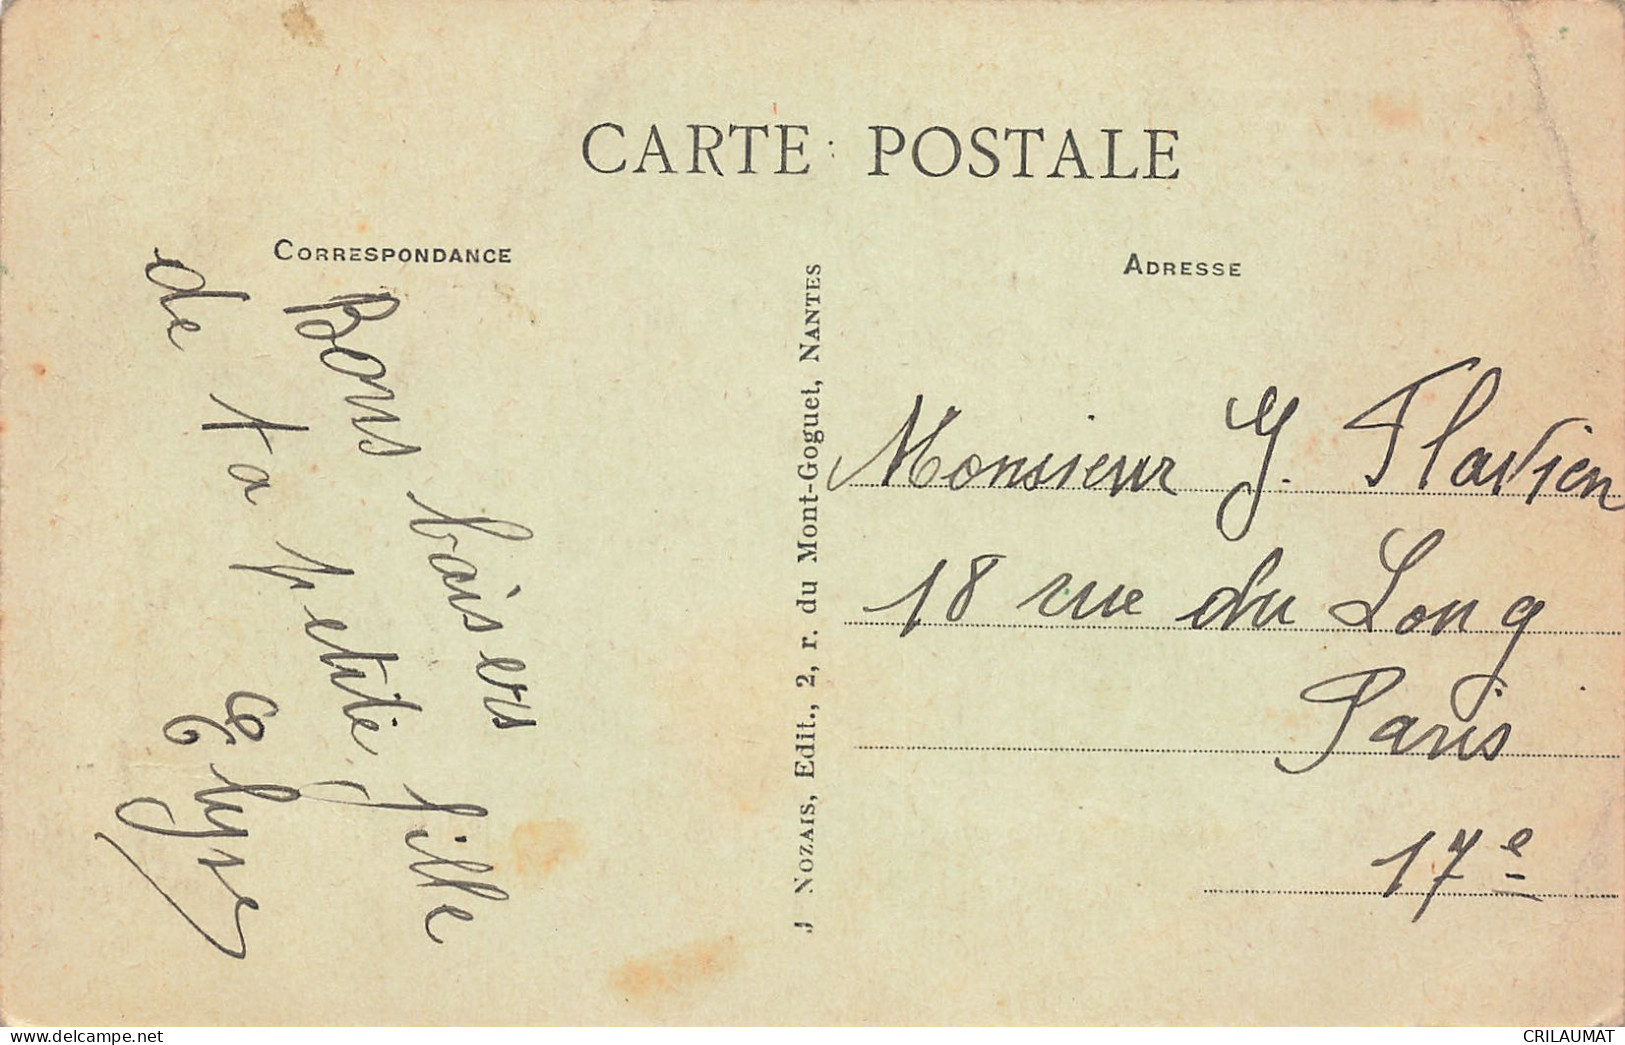 CARTE POSTALE
CORRESPONDANCE
ADRESSE
Bons baisers
de ta petite fille
Elyse
J NOZAIS, Edit., 2, r. du Mont-Goguet, NANTES
Monsieur J. Flavien
18 rue du Long
Paris
17e
delcampe.net
CRILAUMAT